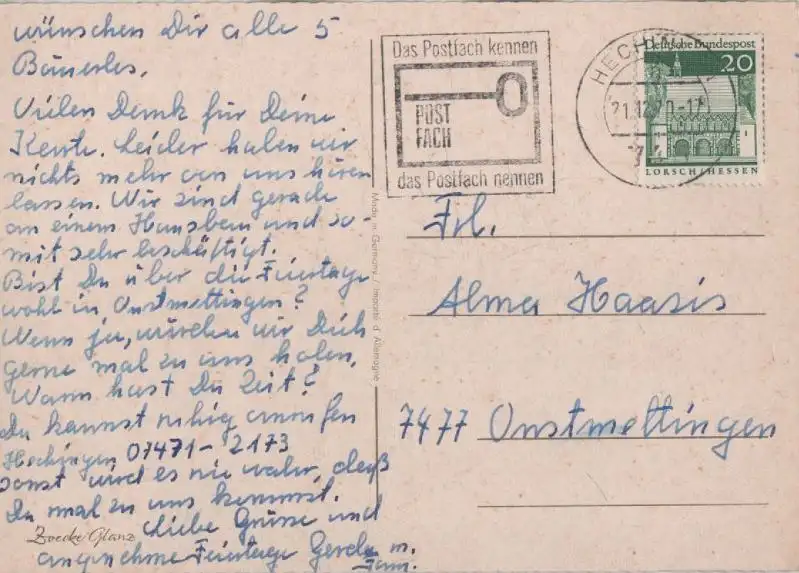 wünschen Dir alle 5
Bäuerles.
Vielen Dank für Deine
Karte. Leider haben wir
nichts mehr von uns hören
lassen. Wir sind gerade
an einem Hausbau und so-
mit sehr beschäftigt.
Bist Du über die Feiertage
wohl in Onstmettingen?
Wenn ja, würden wir Dich
gerne mal zu uns holen.
Wann hast Du Zeit?
Du kannst ruhig anrufen
Hechingen 07471-2173
sonst wird es nie wahr, daß
Du mal zu uns kommst.
Liebe Grüsse und
angenehme Feiertage Gerda m.
Fam.
Zoecke Glanz
Made in Germany / Importé d'Allemagne
Das Postfach kennen
POST
FACH
das Postfach nennen
HECHIN
21.12.70-17
Deutsche Bundespost
20
LORSCH/HESSEN
Frl.
Alma Haasis
7477 Onstmettingen